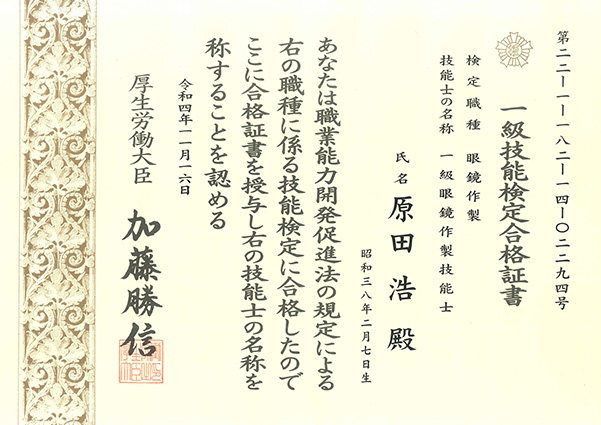 第二二―一―一八二―一四―〇二二九四号
一級技能検定合格証書
検定職種 眼鏡作製
技能士の名称 一級眼鏡作製技能士
氏名 原田浩殿
昭和三八年二月七日生
あなたは職業能力開発促進法の規定による
右の職種に係る技能検定に合格したので
ここに合格証書を授与し右の技能士の名称を
称することを認める
令和四年一一月一六日
厚生労働大臣 加藤勝信